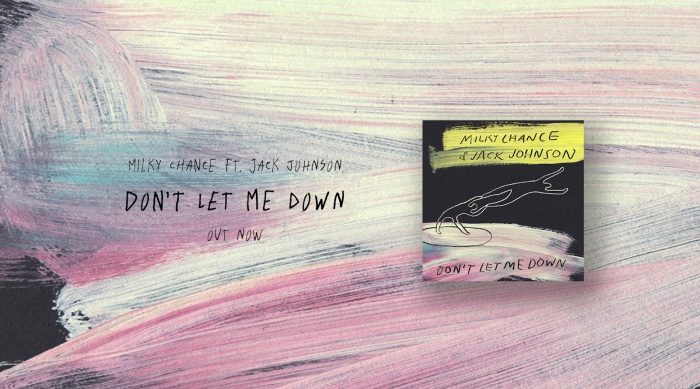 MILKY CHANCE FT. JACK JOHNSON
DON'T LET ME DOWN
OUT NOW
MILKY CHANCE
& JACK JOHNSON
DON'T LET ME DOWN